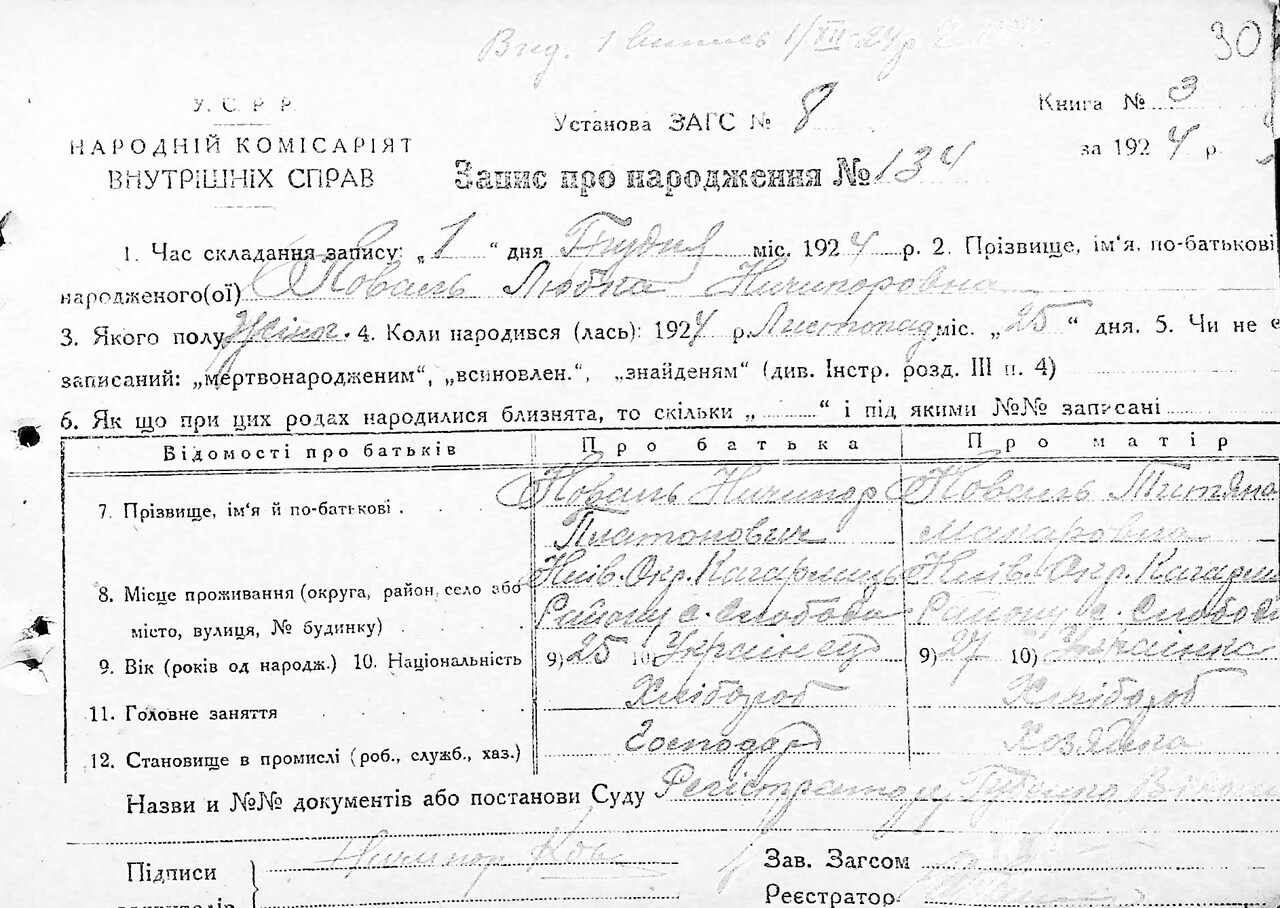 Вид. 1 випись 1/XII-24р
30
У. С. Р. Р.
НАРОДНІЙ КОМІСАРІЯТ
ВНУТРІШНІХ СПРАВ
Установа ЗАГС № 8
Книга № 3
за 1924 р.
Запис про народження № 134
1. Час складання запису: „1“ дня Грудня міс. 1924 р. 2. Прізвище, ім'я, по-батькові
народженого(ої) Коваль Любка Ничипоровна
3. Якого полу Жіноч. 4. Коли народився (лась): 1924 р. Листопад міс. „25“ дня. 5. Чи не є
записаний: „мертвонародженим“, „всиновлен.“, „знайденям“ (див. Інстр. розд. III п. 4)
6. Як що при цих родах народилися близнята, то скільки „ “ і під якими №№ записані
Відомості про батьків Про батька Про матір
7. Прізвище, ім'я й по-батькові Коваль Ничипор Коваль Тетяна
Платонович Макаровна
8. Місце проживання (округа, район, село або Київ. Окр. Кагарлиць Київ. Окр. Кагарлиц
місто, вулиця, № будинку) Району с. Слобода Району с. Слобода
9. Вік (років од народж.) 10. Національність 9) 25 10) Українец 9) 27 10) Українка
11. Головне заняття Хлібороб Хлібороб
12. Становище в промислі (роб., служб., хаз.) Господар Хозяйка
Назви и №№ документів або постанови Суду Регістратор
Підписи Ничипор Ков
Зав. Загсом
Реєстратор